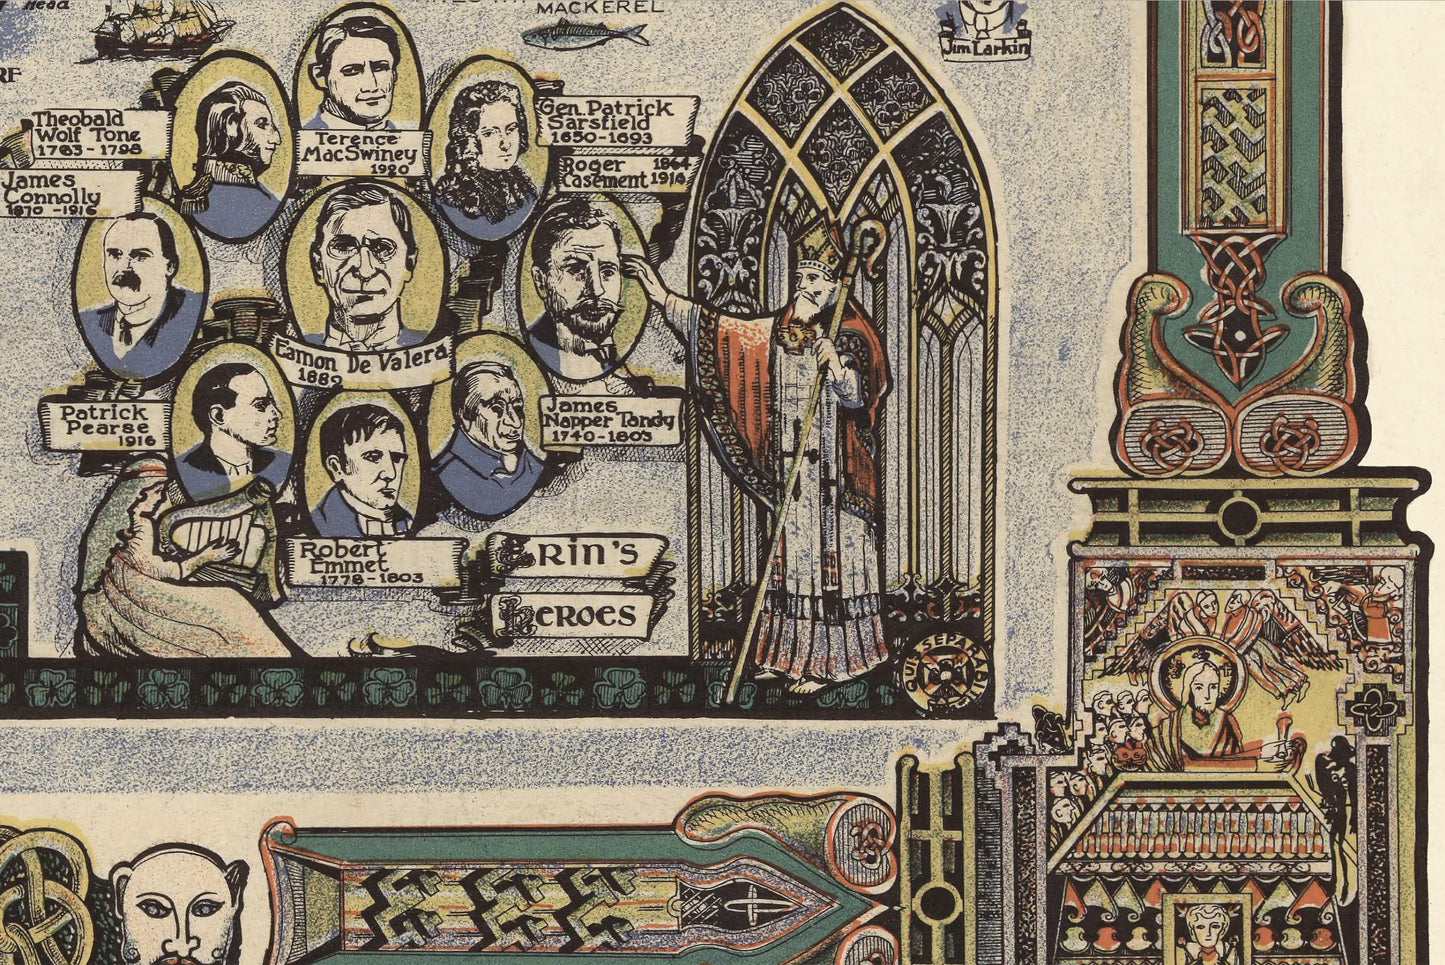 Head
MACKEREL
Jim Larkin
Theobald
Wolf Tone
1763-1798
Terence
MacSwiney
1920
Gen. Patrick
Sarsfield
1650-1693
James
Connolly
1870-1916
Roger 1864
Casement 1916
Eamon De Valera
1882
Patrick
Pearse
1916
James
Napper Tandy
1740-1803
Robert
Emmet
1778-1803
ERIN'S
HEROES
QUIS SEPARABIT